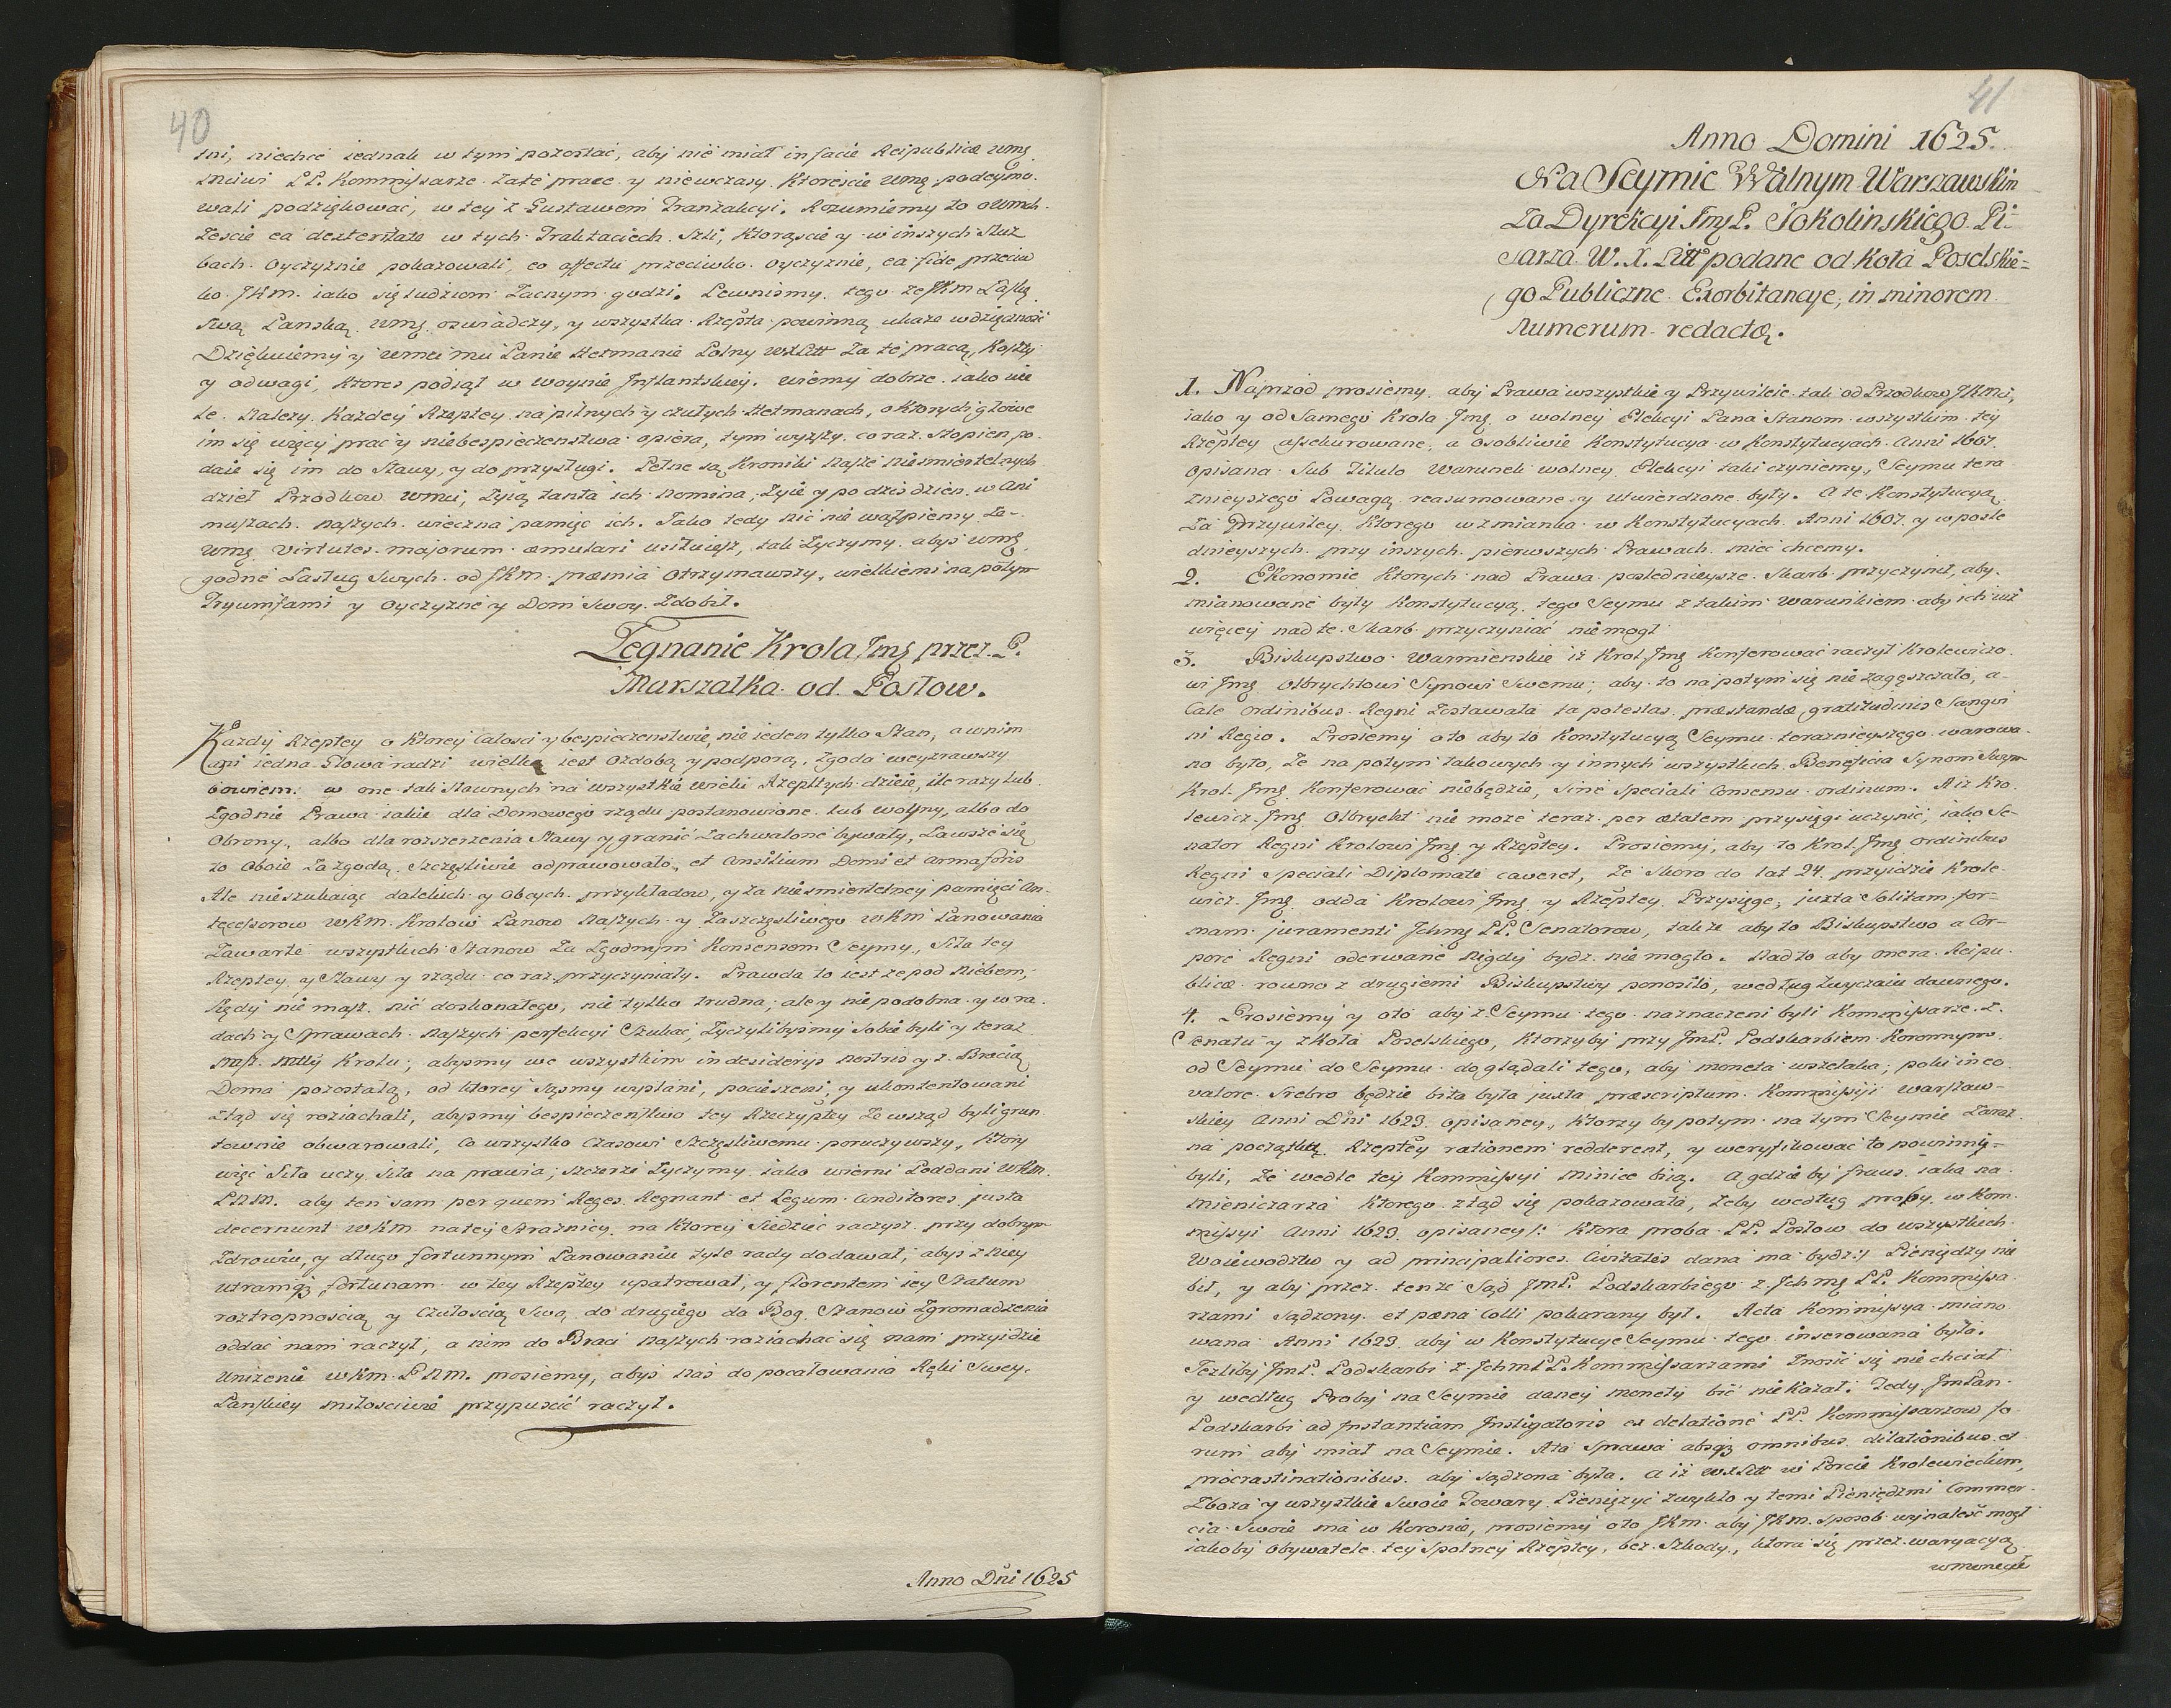 40
sni, niechce iednak w tym pozostać, aby nie miał in facie Reipublicæ wmę
snciwi PP. Kommissarze za te prace y niewczasy, ktoreście wmę podeymo.
wali podziękować, w tey z Gustawem Tranzakcyi. Rozumiemy to o Wmch.
żeście ea dexteritate w tych Traktaciech szli, ktorąście y w inszych służ
bach Oyczyznie pokazowali, eo affectu przeciwko Oyczyznie, ea fide przeciw
ko JKm. iako się ludziom zacnym godzi. Pewnismy tego że JKm Łaskę
swą Panską wmę oswiadczy, y wszystka Rzepta powinną ukaże wdzięczność
Dziękuiemy y wmci mci Panie Hetmanie Polny WXLitt za te pracą, koszty
y odwagi, ktores podiął w woynie Inflantskiey. wiemy dobrze iako wie
le należy każdey Rzeptey na pilnych y czułych Hetmanach, o ktorych głowe
im się więcy prac y niebespieczenstwa opiera, tym wyższy coraz stopien po.
daie się im do sławy, y do przysługi. Pełne są Kroniki nasze niesmiertelnych
dzieł Przodkow wmci, żyią tanta ich nomina, żyie y po dzis dzien w ani
muszach naszych wieczna pamięc ich. Jako tedy nic nie wątpiemy że-
wmę virtutes majorum æmulari usiłuiesz, tak życzymy abyś wmę
godne zasług swych od JKm. præmia otrzymawszy, wielkiemi na potym
Tryumfami y Oyczyznę y Dom swoy zdobił.
Żegnanie Krola Jmę przez P.
Marszałka od Posłow.
Każdy Rzeptey o ktorey całosci y bespieczenstwie, nie ieden tylko stan, a w nim
ani iedna głowa radzi wielką iest ozdobą y podporą, zgoda weyzrawszy
bowiem w one tak sławnych na wszystkie wieki Rzepltych dzieie, ile razy lub
zgodnie Prawa iakie dla Domowego rządu postanowione lub woyny, albo do
Obrony, albo dla rozszerzenia sławy y granic zachwalone bywały, zawsze się
to oboie za zgodą szczęśliwie odprawowało, et Consilium Domi et arma foris
Ale nieszukaiąc dalekich y obcych przykładow, y za niesmiertelney pamięci An-
tecessorow WKm. Krolow Panow naszych y za szczęśliwego WKm Panowania
zawarte wszystkich Stanow za zgodnym konsensem Seymy, siła tey
Rzeptey y sławy y rządu coraz przyczyniały. Prawda to iest że pod niebem,
kędy nie masz nic doskonałego, nie tylko trudna, ale y nie podobna y w ra.
dach y sprawach naszych perfekcyi szukać, życzylibysmy sobie byli y teraz
Najt. Młły Krolu, abysmy we wszystkim in desiderijs nostris y z Bracią
Doma pozostałą, od ktorey sąsmy wysłani, pocieszeni, y ukontentowani
ztąd się roziachali, abysmy bespieczenstwo tey Rzeczyptey zewsząd byli grun
townie obwarowali, Co wszystko czasowi szczęśliwemu poruczywszy, ktory
więc siła uczy, siła na prawia; szczerze życzymy iako wierni Poddani WKm.
P.N.M. aby ten sam per quem Reges Regnant et Legum Conditores justa
decernunt WKm. na tey strażnicy, na ktorey siedzieć raczysz przy dobrym
zdrowiu, y długo fortunnym Panowaniu tyle rady dodawał, abyś z niey
utramqȝ fortunam w tey Rzeptey upatrował, y florentem iey Statum
roztropnoscią y czułoscią swą, do drugiego da Bog Stanow zgromadzenia
oddać nam raczył, a nim do Braci naszych roziachać się nam przyidzie
Unizenie WKm. P.N.M. prosiemy, abyś nas do pocałowania Ręki Swey.
Panskiey miłosciwie przypuscić raczył.
Anno Dñi 1625
41
Anno Domini 1625.
Na Seymie Walnym Warszawskim
za Dyrekcyi JmęP. Sokolinskiego Pi-
sarza W.X.Litt podane od Koła Poselskie-
go Publiczne Exorbitancye, in minorem
numerum redactæ.
1. Naprzod prosiemy, aby Prawa wszystkie y Przywileie tak od Przodkow JKMci,
iako y od samego Krola Jmę o wolney Elekcyi Pana Stanom wszystkim tey
Rzeptey assekurowane, a osobliwie Konstytucya w Konstytucyach Anni 1607.
opisana sub Titulo Warunek wolney Elekcyi taki czyniemy, Seymu tera
znieyszego Powagą reasumowane y utwierdzone były. A te Konstytucyą
za Przywiley, ktorego wzmianka w Konstytucyach Anni 1607. y w posle
dnieyszych przy inszych pierwszych Prawach mieć chcemy.
2. Ekonomie ktorych nad Prawa poslednieysze skarb przyczynił, aby
mianowane były Konstytucyą tego Seymu z takim warunkiem aby ich iuż
więcey nad te skarb przyczyniać nie mogł
3. Biskupstwo Warmienskie iż Krol Jmę konferować raczył Krolewiczo
wi Jmę Olbrychtowi Synowi Swemu; aby to na potym się nie zagęszczało, a-
Cale Ordinibus Regni zostawała ta potestas præstandæ gratitudinis Sangvi
ni Regio. Prosiemy o to aby to Konstytucyą Seymu teraznieyszego warowa
no było, że na potym takowych y innych wszystkich Beneficia Synom Swym
Krol Jmę konferować niebędzie, sine speciali Consensu ordinum. A iż Kro.
lewicz Jmę Olbrycht nie może teraz per ætatem przysięgi uczynić, iako Se-
nator Regni Krolowi Jmę y Rzeptey. Prosiemy, aby to Krol Jmę ordinibus
Regni speciali Diplomate caveret, że skoro do lat 24. przyidzie Krole-
wicz Jmę odda Krolowi Jmę y Rzeptey Przysięgę, juxta Solitam for-
mam juramenti Ichmę PP. Senatorow, także aby to Biskupstwo a Cor-
pore Regni oderwane nigdy bydz nie mogło. Nad to aby onera Reipu-
blicæ rowno z drugiemi Biskupstwy ponosiło, według zwyczaiu dawnego.
4. Prosiemy y o to aby z Seymu tego naznaczeni byli Kommissarze z
Senatu y z Koła Poselskiego, ktorzyby przy JmP. Podskarbiem Koronnym
od Seymu do Seymu doglądali tego, aby moneta wszelaka, poki in eo
valore srebro będzie bita była juxta præscriptum Kommissyi Warszaw-
skiey Anni Dñi 1623. opisaney, ktorzy by potym na tym Seymie zaraz
na początku Rzeptey rationem redderent, y weryfikować to powinni-
byli, że wedle tey Kommissyi Mince biią. A gdzie by fraus iaka na
mienicarza ktorego ztąd się pokazowała, żeby według proby w Kom-
missyi Anni 1623. opisaney /: ktora proba PP. Posłow do wszystkich
Woiewodztw y ad principaliores Civitates dana ma bydz :/ Pieniędzy nie
bił, y aby przez tenże Sąd JmP. Podskarbiego z Ichmę PP. Kommissa
rzami sądzony et pæna Colli pokarany był. Acta Kommissya miano
wana Anni 1623. aby w Konstytucye Seymu tego inserowana była.
Jezliby JmP. Podskarbi z IchmPP. Kommissarzami znosić się niechciał
y według Proby na Seymie daney monety bić nie kazał: Tedy JmPan
Podskarbi ad Instantiam Instigatoris ex delatione PP. Kommissarzow fo
rum aby miał na Seymie. Ata Sprawa absqȝ omnibus dilationibus et
procrastinationibus aby sądzona była. A iż WXLitt w Porcie Krolewieckim,
Zboża y wszystkie swoie Towary Pienięzyć zwykło y temi Pieniędzmi Commer-
cia swoie ma w Koronie, prosiemy o to JKm. aby JKm. sposob wynaleść mogł
iakoby Obywatele tey spolney Rzeptey, bez szkody, ktora się przez waryacyą
w monecie